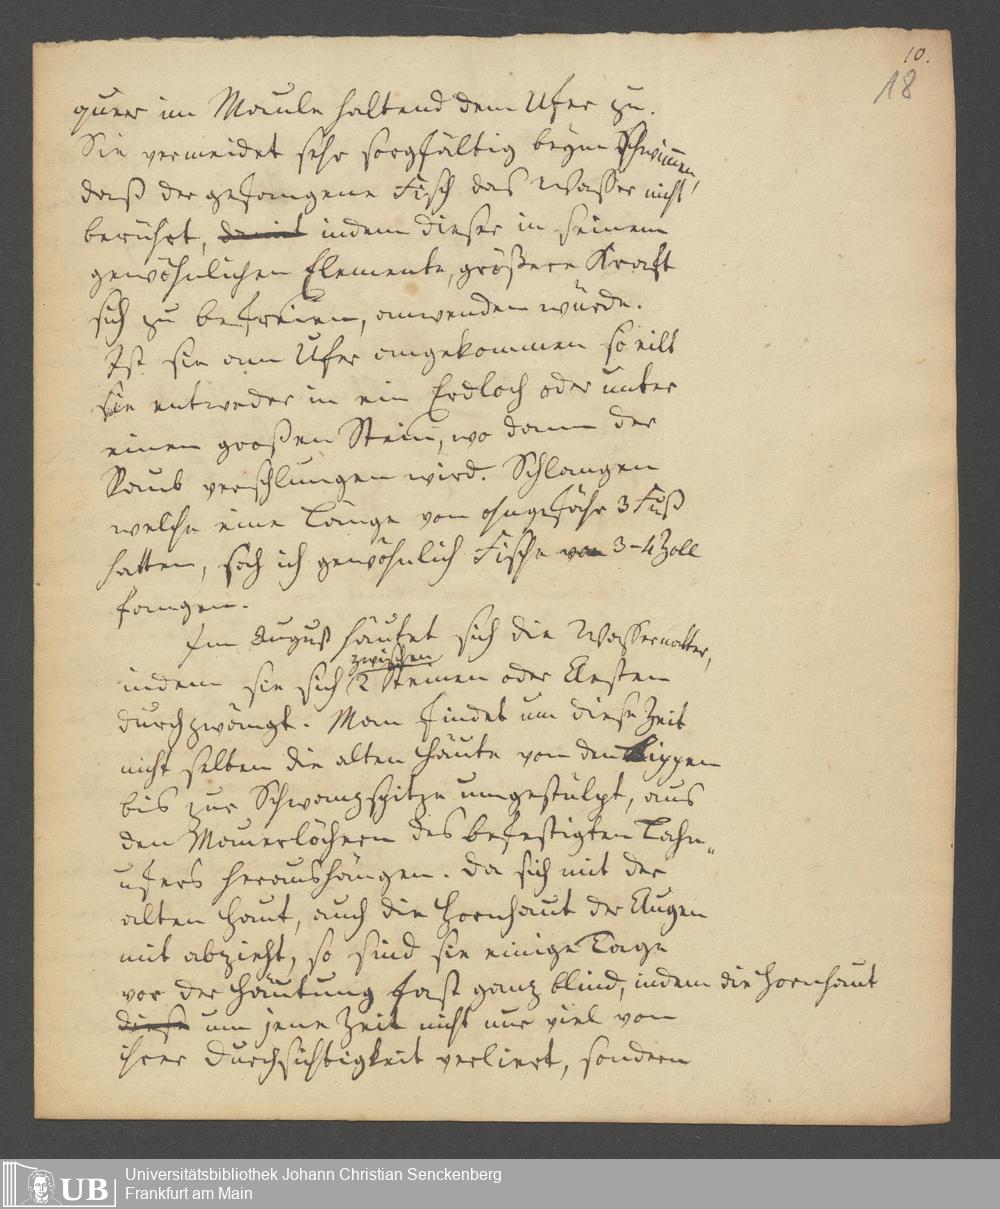 10.
18
queer im Maule haltend dem Ufer zu.
Sie vermeidet sehr sorgfältig beym Schwimmen,
daß der gefangene Fisch das Wasser nicht
berührt, damit indem dieser in seinem
gewöhnlichen Elemente, größere Kraft
sich zu befreien, anwenden würde.
Ist sie am Ufer angekommen so eilt
sie entweder in ein Erdloch oder unter
einen großen Stein, wo dann der
Raub verschlungen wird. Schlangen
welche eine Länge von ohngefähr 3 Fuß
hatten, sah ich gewöhnlich Fische von 3-4 Zoll
fangen.
Im August häutet sich die Wassernatter,
zwischen
indem sie sich 2 Steinen oder Aesten
durchzwängt. Man findet um diese Zeit
nicht selten die alten Häute von den Lippen
bis zur Schwanzspitze umgestülpt, aus
den Mauerlöchern des befestigten Lahn„
ufers heraushängen. Da sich mit der
alten Haut, auch die Hornhaut der Augen
mit abzieht, so sind sie einige Tage
vor der Häutung fast ganz blind, indem die Hornhaut
diese um jene Zeit nicht nur viel von
ihrer Durchsichtigkeit verliert, sondern
UB
Universitätsbibliothek Johann Christian Senckenberg
Frankfurt am Main